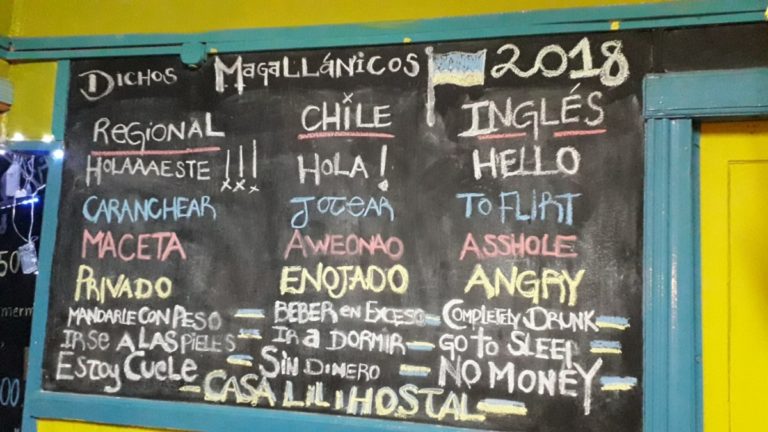 DICHOS MAGALLÁNICOS 2018
REGIONAL CHILE INGLÉS
HOLAAAESTE !!! HOLA! HELLO
CARANCHEAR JOTEAR TO FLIRT
MACETA AWEONAO ASSHOLE
PRIVADO ENOJADO ANGRY
MANDARLE CON PESO BEBER en EXCESO COMPLETELY DRUNK
IRSE A LAS PIELES IR a DORMIR GO to SLEEP
ESTOY CUELE SIN DINERO NO MONEY
CASA LILI HOSTAL
50
00